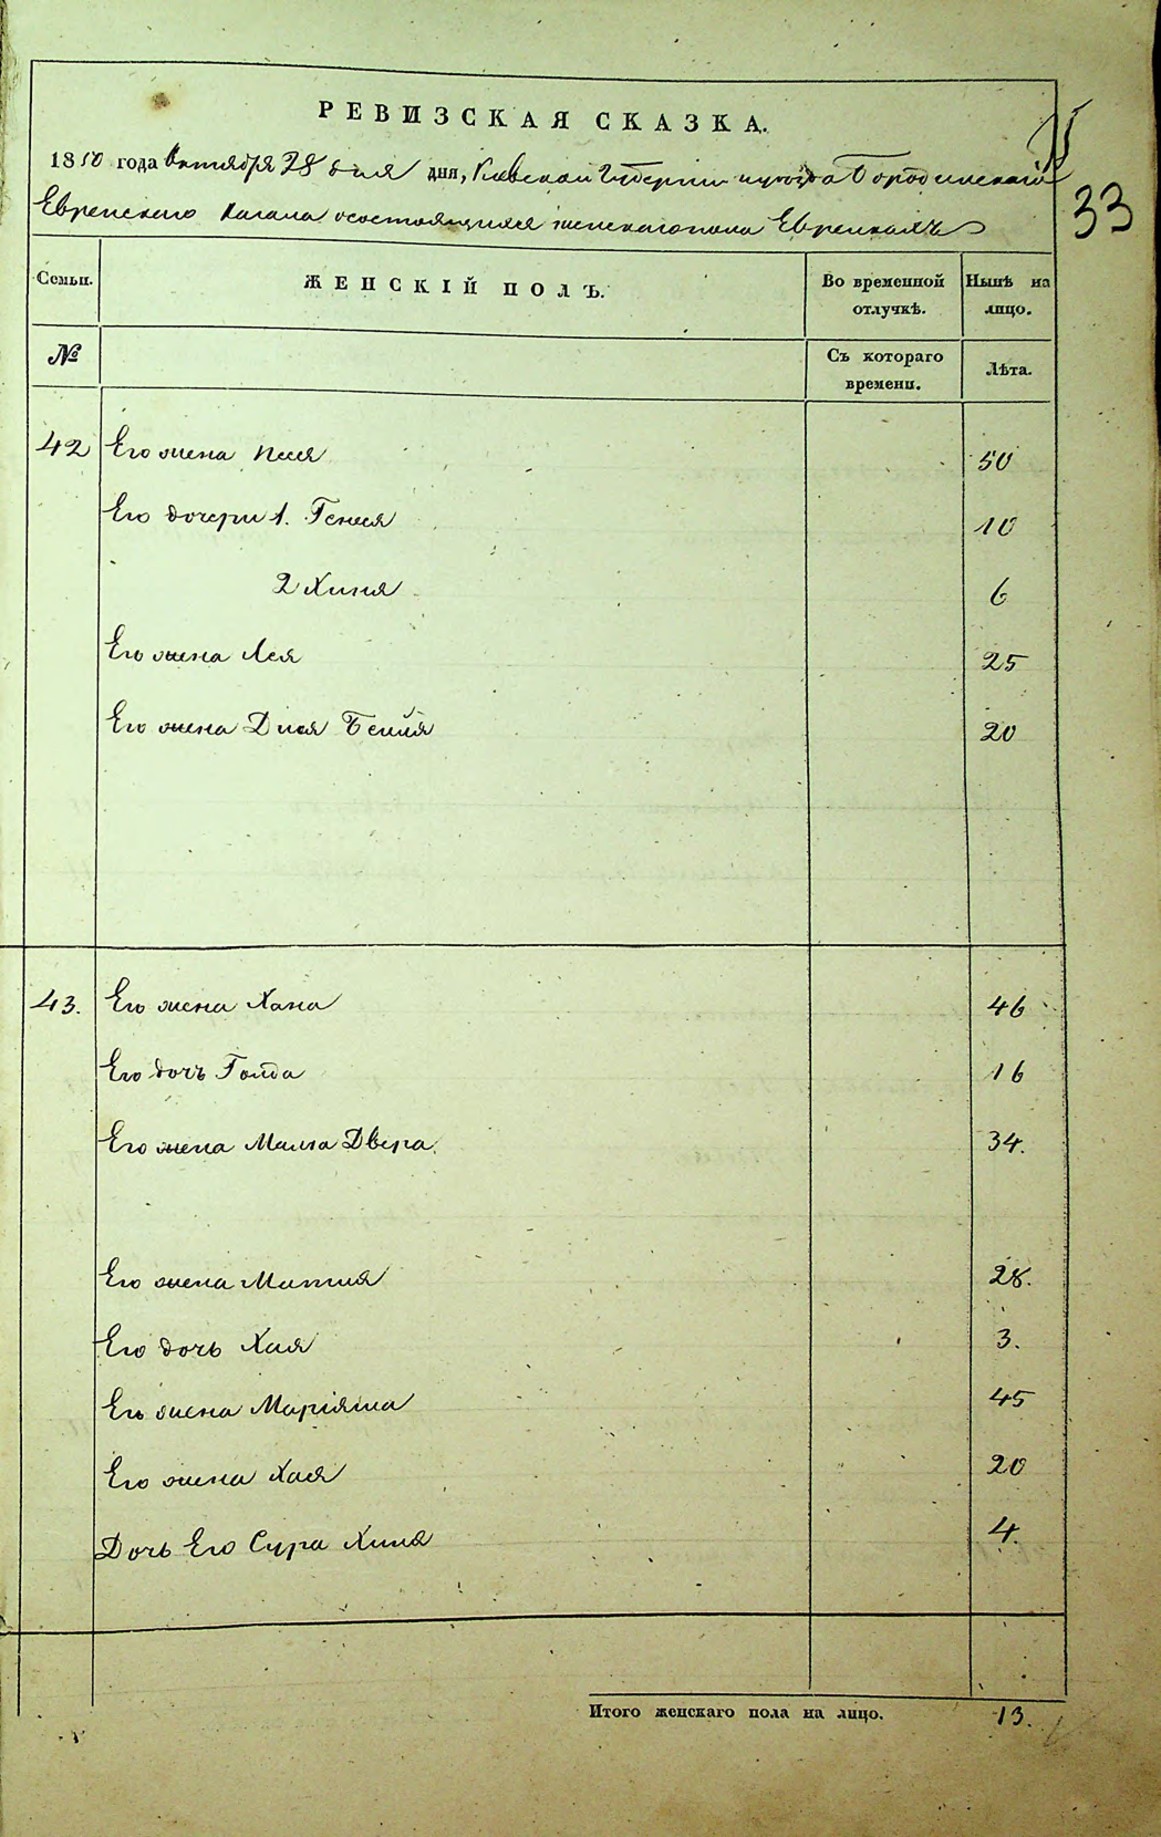 РЕВИЗСКАЯ СКАЗКА.
1850 года Октября 28 дня дня, Киевской Губернии
33
Еврейского Кагала о состоящихся женскаго пола Евреикахъ
Семьи. ЖЕНСКІЙ ПОЛЪ. Во временной отлучкѣ. Нынѣ на лицо.
№ Съ котораго времени. Лѣта.
42 Его жена Песя 50
Его дочери 1. Генеся 10
2 Хиня 6
Его жена Лея 25
Его жена Бейля 20
43. Его жена Хана 46
Его дочь Голда 16
Его жена Малка Двера 34.
Его жена 28.
Его дочь Хая 3.
Его жена Маріяма 45
Его жена Хася 20
Дочь Его Сура Хиня 4.
Итого женскаго пола на лицо. 13.